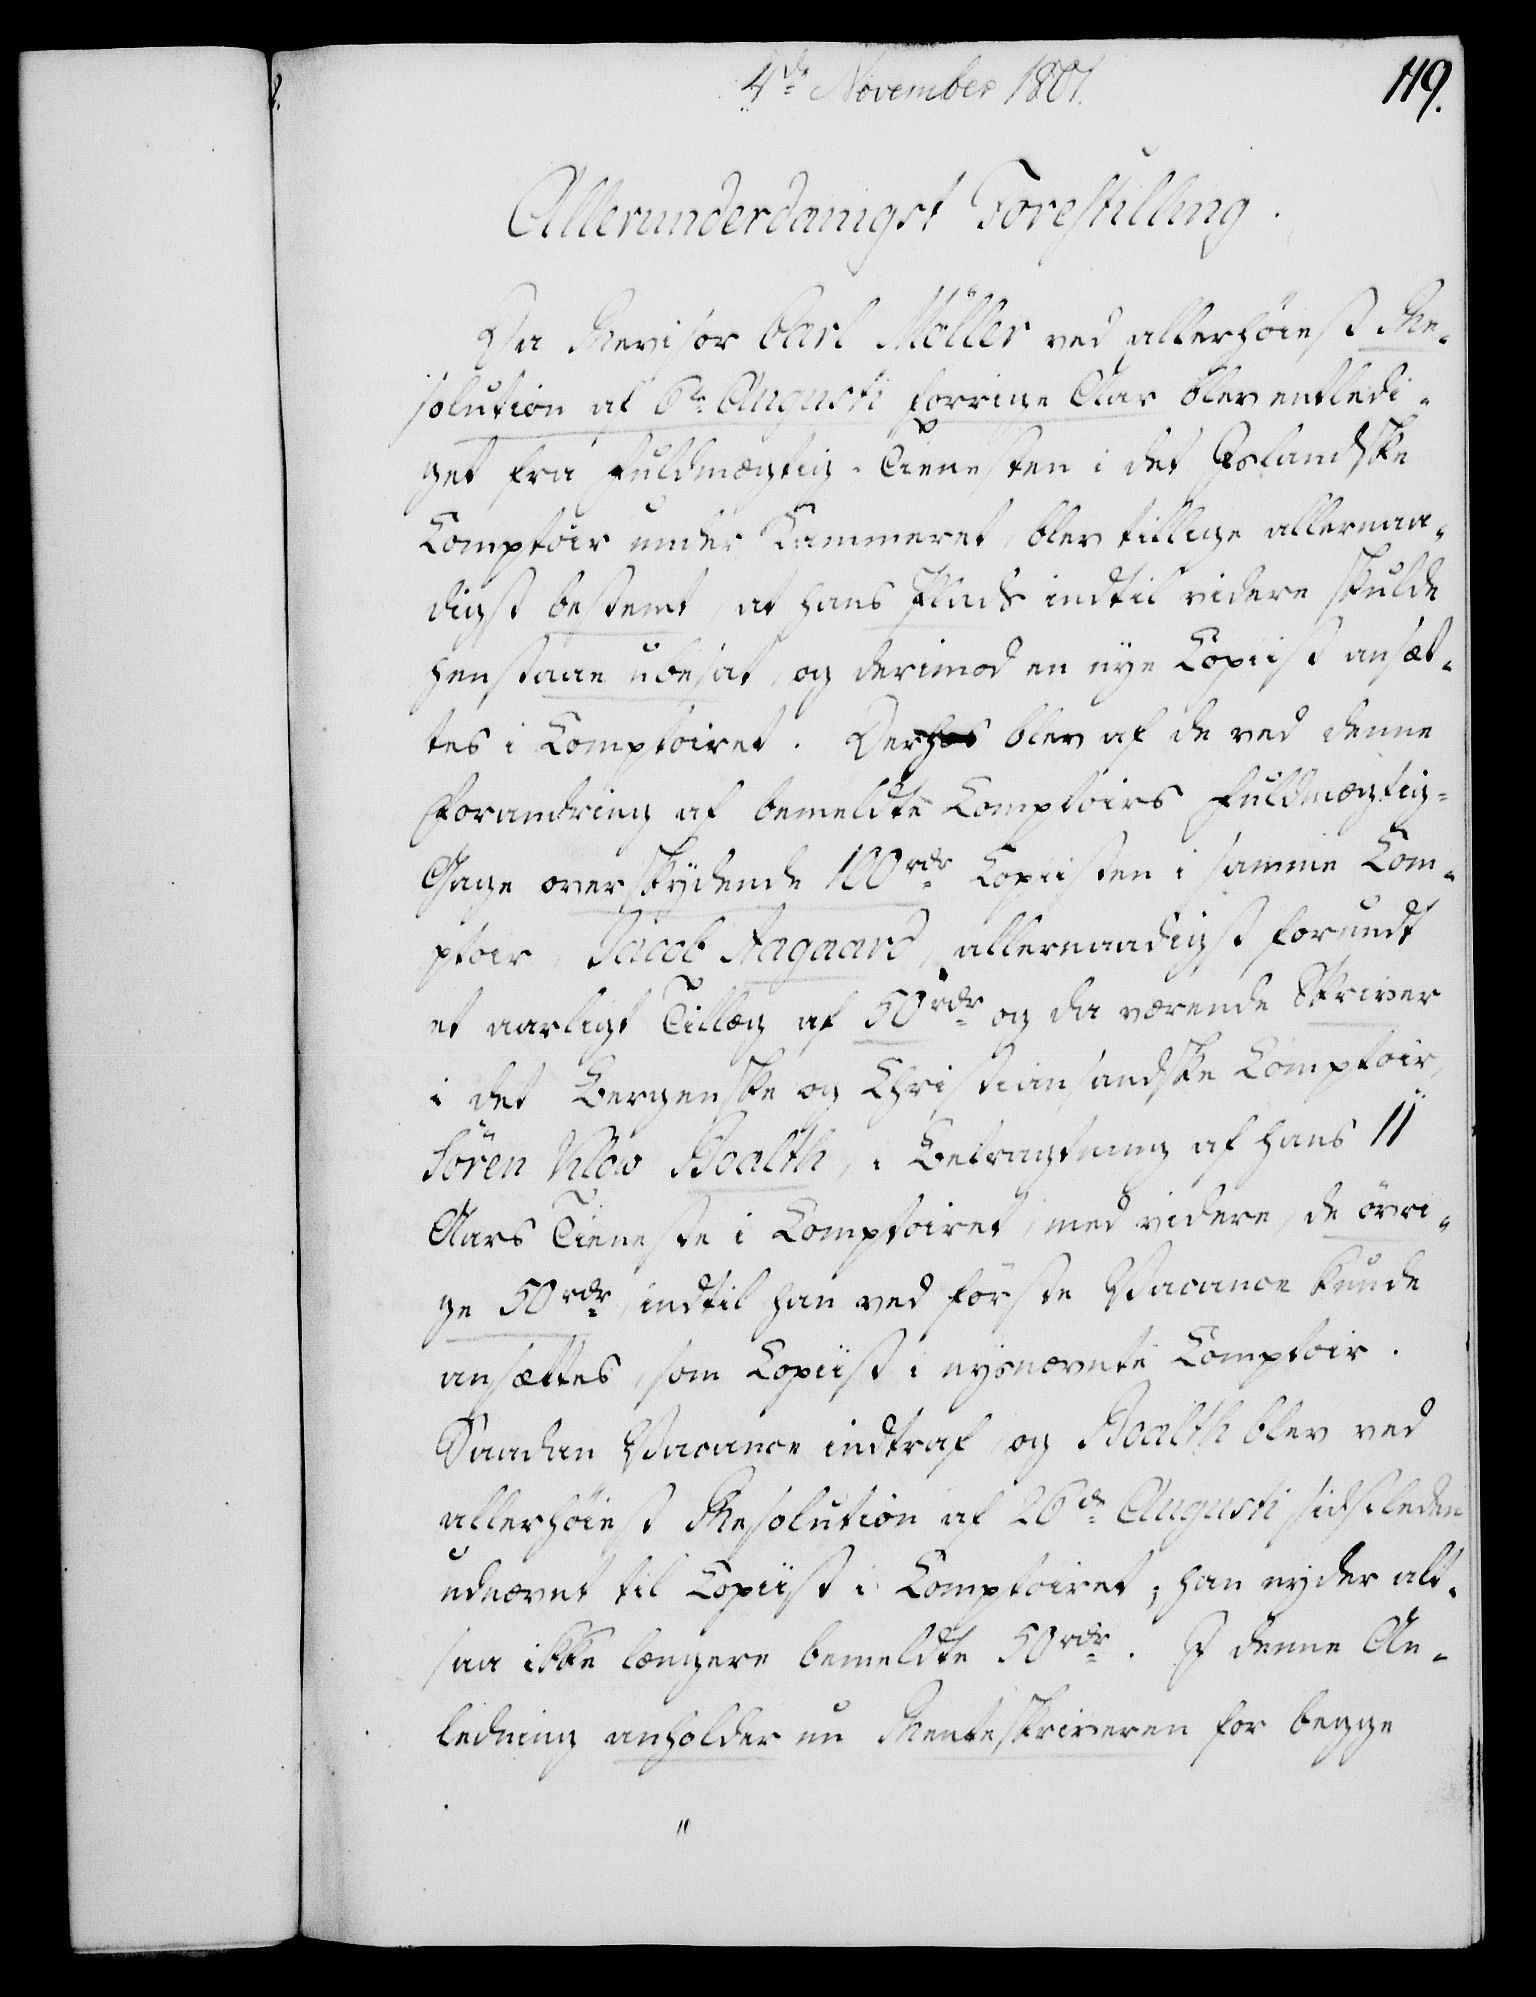 4de November 1801.
119.
Allerunderdanigst Forestilling.
Da Revisor Carl Möller ved allerhöiest Re-
solution af 6te Augusti forrige Aar blev entledi-
get fra Fuldmægtig-Tienesten i det Islandske
Comptoir under Kammeret, blev tillige allernaa-
digst bestemt, at hans Plads indtil videre skulde
henstaae ubesat, og derimod en nye Copiist ansæt-
tes i Comptoiret. Derhos blev af de ved denne
Forandring af bemeldte Comptoirs Fuldmægtig-
Gage overskydende 100 rdr Copiisten i samme Com-
ptoir, Jacob Aagaard, allernaadigst forundt
et aarligt Tillæg af 50 rdr og da værende Skriver
i det Bergenske og Christiansandske Comptoir,
Sören Klov Boalth, i Betragtning af hans 11
Aars Tieneste i Comptoiret, med videre, de övri-
ge 50 rdr, indtil han ved förste Vacance kunde
ansættes, som Copiist i nysnævnte Comptoir.
Saadan Vacance indtraf, og Boalth blev ved
allerhöiest Resolution af 26de Augusti sidstleden
udnævnt til Copiist i Comptoiret; han nyder alt-
saa ikke længere bemeldte 50 rdr. I denne An-
ledning anholder nu Renteskriveren for begge